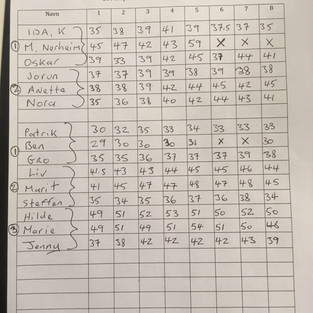 Navn 1 2 3 4 5 6 7 8
IDA, K 35 38 39 41 39 37.5 37 35
① M. Norheim 45 47 42 43 59 X X X
Oskar 39 33 39 42 45 37 44 41
Jorun 37 37 39 39 38 39 38 38
② Anette 38 38 39 42 44 45 42 45
Nora 35 36 38 40 42 44 43 41
Patrik 30 32 35 33 34 33 33 33
① Ben 29 30 30 30 31 X X 30
Gro 35 35 36 37 37 37 39 38
Liv 41.5 43 43 44 45 45 46 44
② Marit 41 45 47 47 48 47 48 45
Steffen 35 34 35 36 37 36 38 34
Hilde 49 51 52 53 51 50 52 50
③ Marie 49 51 49 51 54 51 50 46
Jenny 37 38 42 42 42 42 43 39